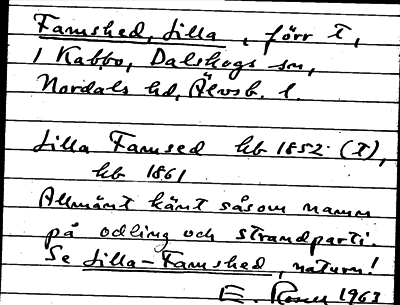 Famshed, Lilla, förr t,
i Kabbo, Dalskogs sn,
Nordals hd, Älvsb. l.
Lilla Famsed hb 1852 (t),
hb 1861
Allmänt känt såsom namn
på odling och strandparti.
Se Lilla-Famshed, naturn!
E. 1963